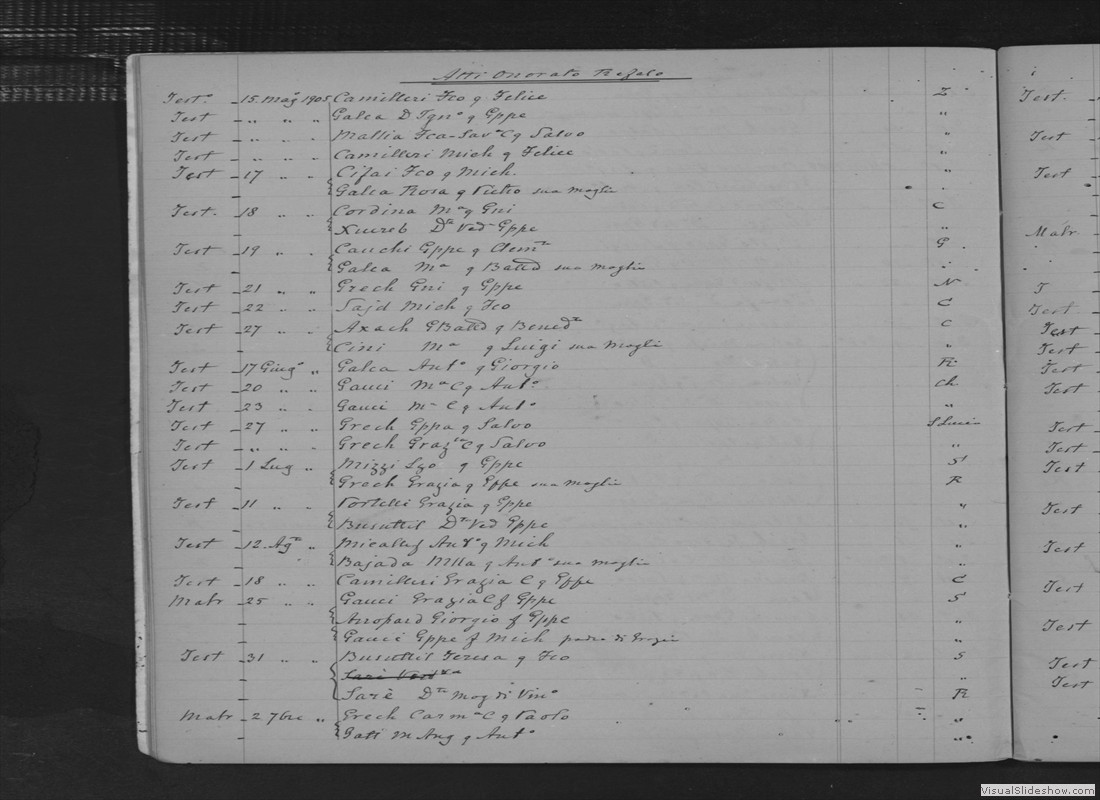 Atti Onorato Refalo
Test.o 15 Mag 1905 Camilleri Fco q Felice Z
Test " " " Galea D Ign.o q Gppe "
Test " " " Mallia Fca-Sav.a C q Salvo "
Test " " " Camilleri Mich q Felice "
Test 17 " " Cifai Fco q Mich.
Galea Rosa q Vieto sua moglie
Test. 18 " " Cordina M.a q Gni C
Xuereb D.ta Ved Gppe "
Test 19 " " Cauchi Gppe q Clem.te G
Galea M.a q Batt.a sua moglie
Test 21 " " Grech Gni q Gppe N
Test 22 " " Sajd Mich q Fco C
Test 27 " " Axach GBatta q Bened.to C
Cini M.a q Luigi sua moglie "
Test 17 Giug.o " Galea Ant.o q Giorgio R
Test 20 " " Gauci M.a C q Ant.o Ch
Test 23 " " Gauci M.a C q Ant.o "
Test 27 " " Grech Gppa q Salvo S Lucia
Test " " " Grech Graz.a C q Salvo "
Test 1 Lug " Mizzi Lzo q Gppe S
Grech Grazia q Gppe sua moglie R
Test 11 " " Portelli Grazia q Gppe "
Busuttil D.ta Ved Gppe "
Test 12 Ag.to " Micallef Ant.o q Mich "
Bajada q Ant.o sua moglie "
Test 18 " " Camilleri Grazia C q Gppe C
Matr 25 " " Gauci Grazia C f Gppe S
Giorgio f Gppe "
Gauci Gppe f Mich padre di Grazia "
Test 31 " " Busuttil Teresa q Fco S
Sarè D.ta mog di Vin.o R
Matr 2 7bre " Grech Carm.a C q Paolo "
M Ang q Ant.o "
Test.
Test
Test
Matr
T
Test
Test
Test
Test
Test
Test
Test
Test
Test
Test
Test
Test
Test
Test
VisualSlideshow.com